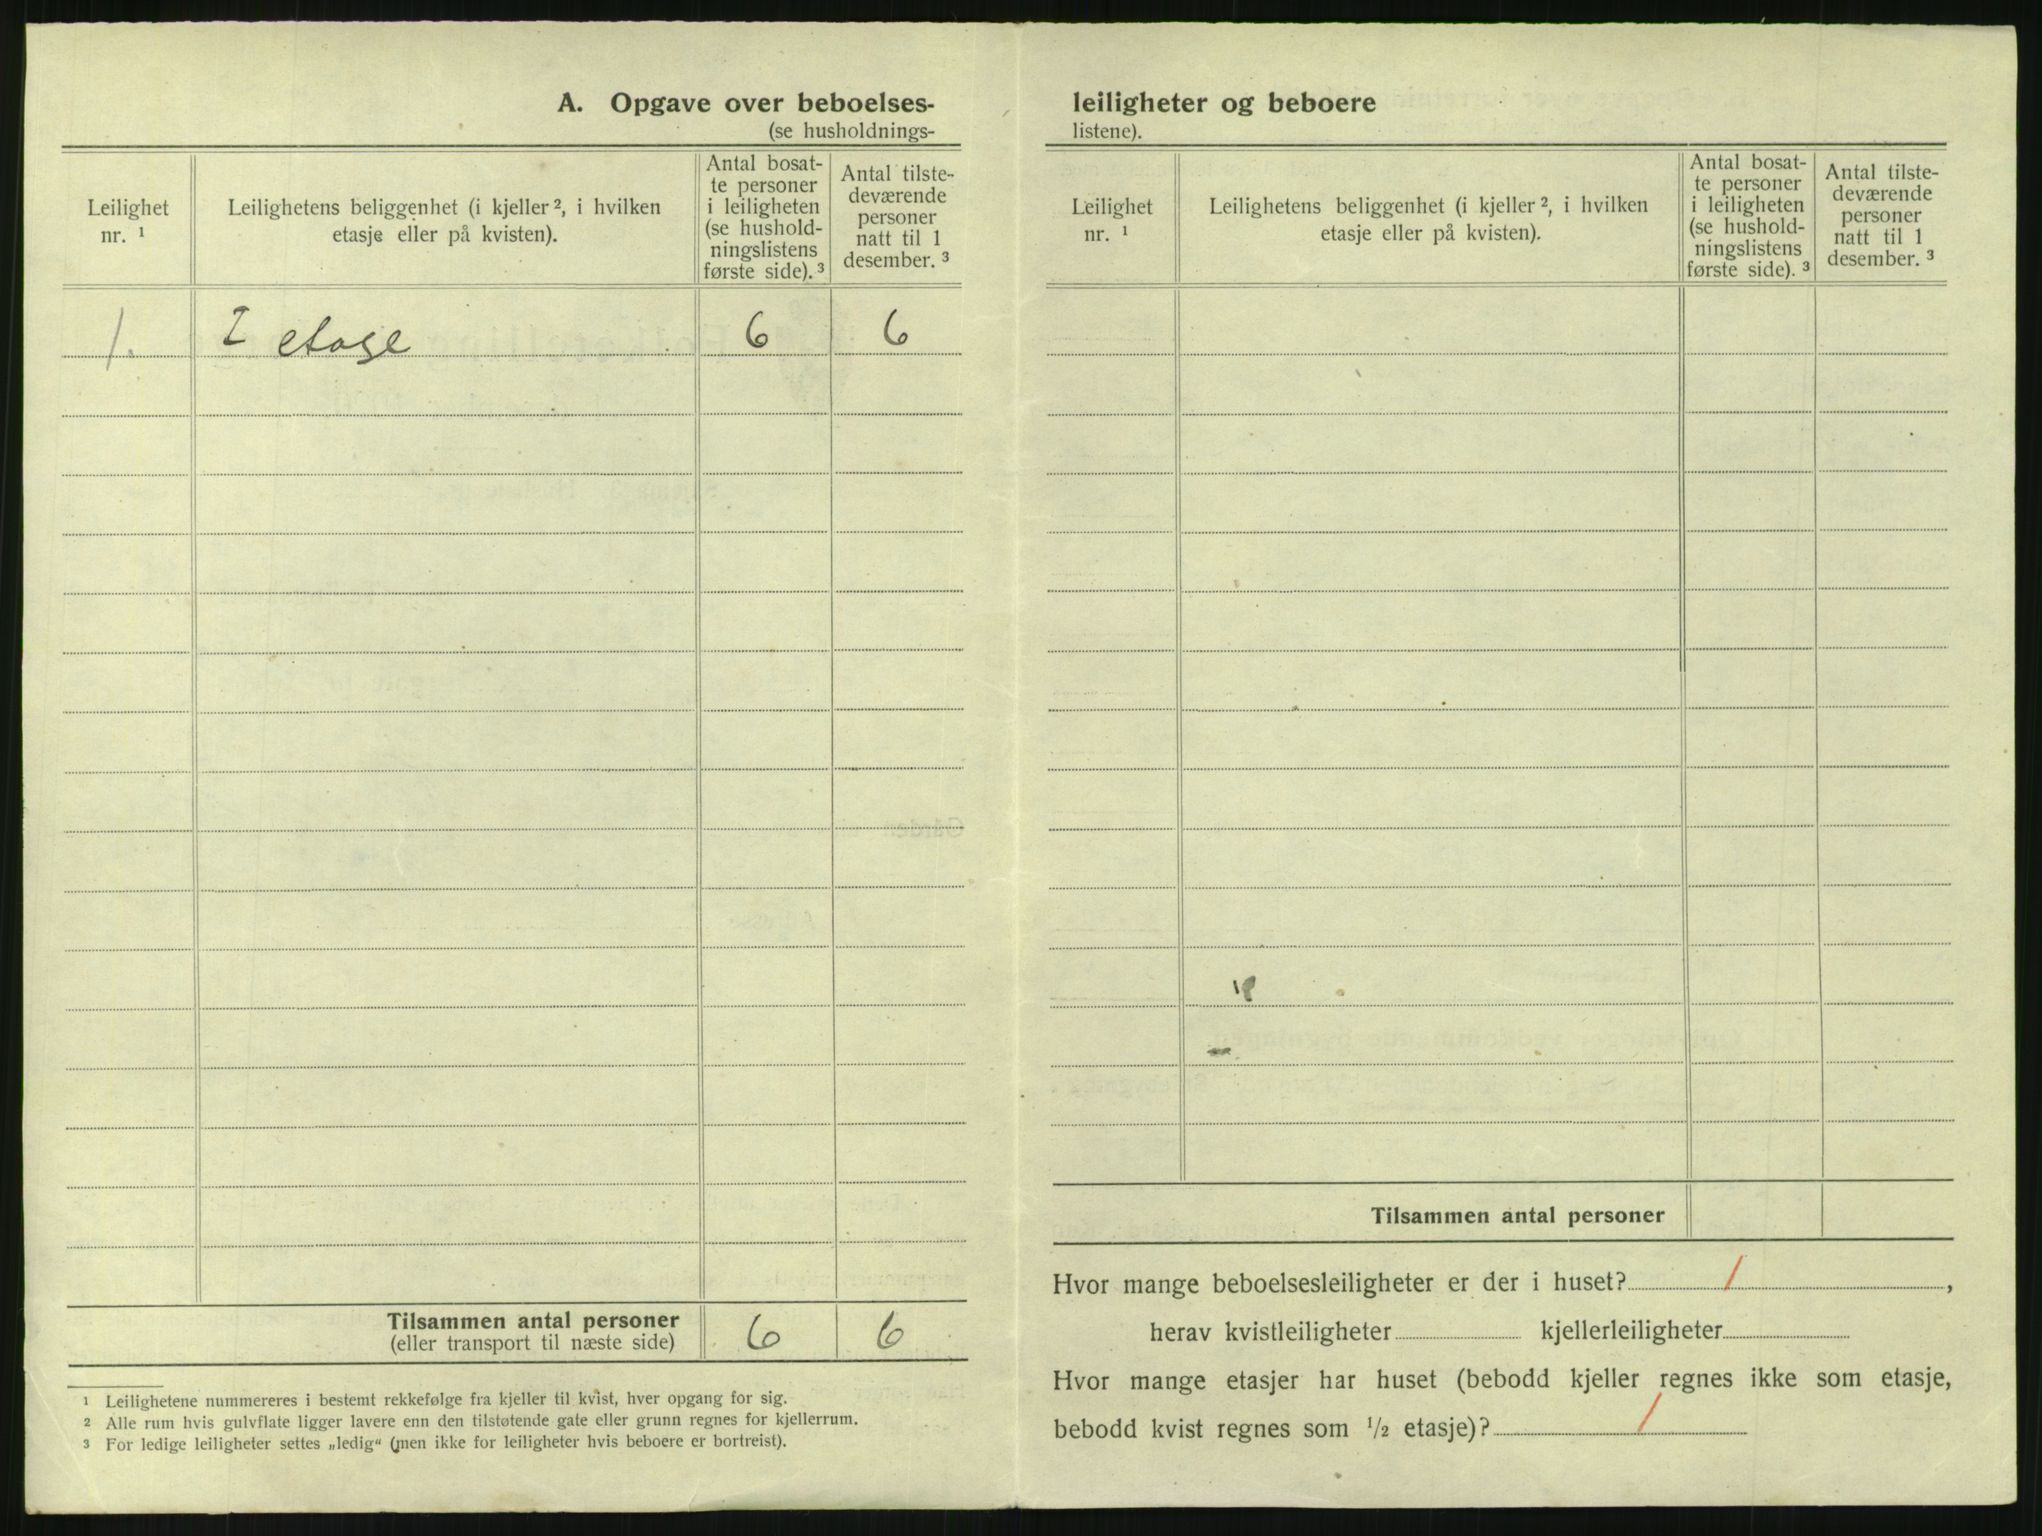 A. Opgave over beboelses-
(se husholdnings-
Leilighet
nr. ¹
Leilighetens beliggenhet (i kjeller ², i hvilken
etasje eller på kvisten).
Antal bosat-
te personer
i leiligheten
(se hushold-
ningslistens
første side). ³
Antal tilste-
deværende
personer
natt til 1
desember. ³
1. I etage 6 6
Tilsammen antal personer 6 6
(eller transport til næste side)
¹ Leilighetene nummereres i bestemt rekkefølge fra kjeller til kvist, hver opgang for sig.
² Alle rum hvis gulvflate ligger lavere enn den tilstøtende gate eller grunn regnes for kjellerrum.
³ For ledige leiligheter settes „ledig“ (men ikke for leiligheter hvis beboere er bortreist).
leiligheter og beboere
listene).
Leilighet
nr. ¹
Leilighetens beliggenhet (i kjeller ², i hvilken
etasje eller på kvisten).
Antal bosat-
te personer
i leiligheten
(se hushold-
ningslistens
første side). ³
Antal tilste-
deværende
personer
natt til 1
desember. ³
Tilsammen antal personer
Hvor mange beboelsesleiligheter er der i huset? 1,
herav kvistleiligheter kjellerleiligheter
Hvor mange etasjer har huset (bebodd kjeller regnes ikke som etasje,
bebodd kvist regnes som ½ etasje)? 1